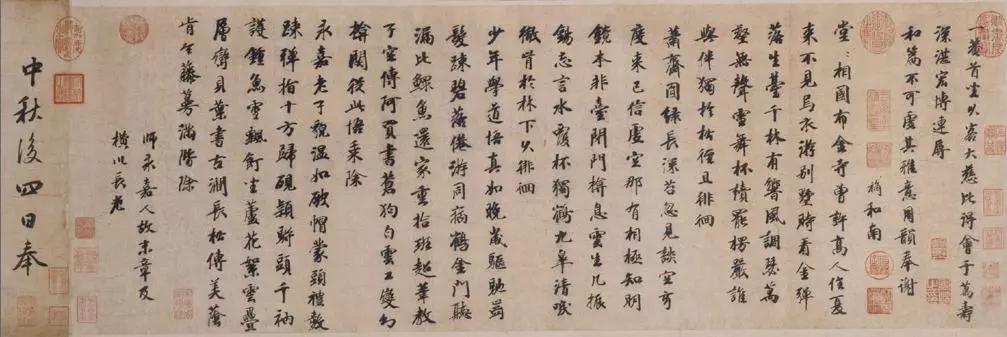 一菴首坐以客大慈比得會于萬壽
深湛宏博連辱
和篇不可虛其雅意用韻奉謝
和南
堂〻相國布金寺曾許高人住夏
來不見烏衣游別墅時看金彈
落生臺千林有響風調瑟萬
壑無聲雪舞杯讀罷楞嚴誰
與伴獨於松徑且徘徊
蕭齋閴綠長深苔忽見談空可
度來已信虛空那有相極知明
鏡本非臺閉門揜息雲生几振
錫忘言水覆杯獨鶴九皋清唳
徹肯於林下久徘徊
少年學道悟真如晚歲驅馳
髮踈碧落僊游同病鶴金門聽
漏比鰥魚還家重拾班超筆教
子空傳阿買書蒼狗白雲工變幻
揜關從此悟乘除
永嘉老子貌溫如破帽蒙頭禮數
踈彈指十方歸硯頭千衲
護鐘魚雪飄飣坐蘆花絮雲疊
層巒貝葉書古澗長松傳美蔭
肯令藤蔓滿階除
師永嘉人故末章及
橫川長老
中秋後四日奉